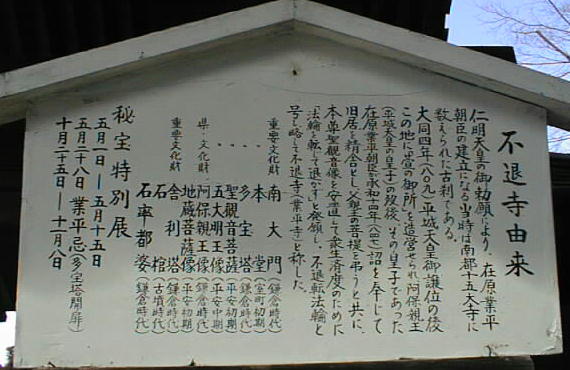 不退寺由来
仁明天皇の御勅願により、在原業平
朝臣の建立になる当時は南都十五大寺に
数えられた古刹である。
大同四年(八〇九)平城天皇御譲位の後
この地に萱の御所を造営せられ阿保親王
(平城天皇の皇子)の歿後、その皇子であった
在原業平朝臣が承和十四年(八四七)詔を奉じて
旧居を精舎とし父親王の菩提を弔うと共に、
本尊聖観音像を安置して衆生済度のために
「法輪を転じて退かず」と発願し、不退転法輪と
号し略して不退寺(業平寺)と称した。
重要文化財 南大門(鎌倉時代)
〃 本堂(室町初期)
〃 多宝塔(鎌倉時代)
〃 聖観音菩薩(平安初期)
〃 五大明王像(平安中期)
県・文化財 阿保親王像(鎌倉時代)
地蔵菩薩像(平安初期)
重要文化財 舎利塔(鎌倉時代)
石棺(古墳時代)
石率都婆(鎌倉時代)
秘宝特別展
五月一日―五月十五日
五月二十八日 業平忌(多宝塔開扉)
十月二十五日―十一月八日